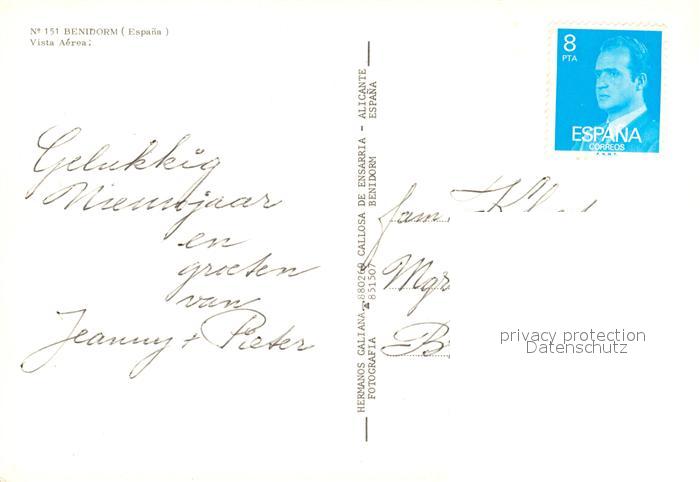 Nº 151 BENIDORM ( España )
Vista Aérea.
Gelukkig
Nieuwjaar
en
groeten
van
Jeanny + Pieter
HERMANOS GALIANA 880260 CALLOSA DE ENSARRIA - ALICANTE
FOTOGRAFIA ☎ 851507 BENIDORM ESPAÑA
8
PTA
ESPAÑA
CORREOS
fam.
Mgr
B
privacy protection
Datenschutz